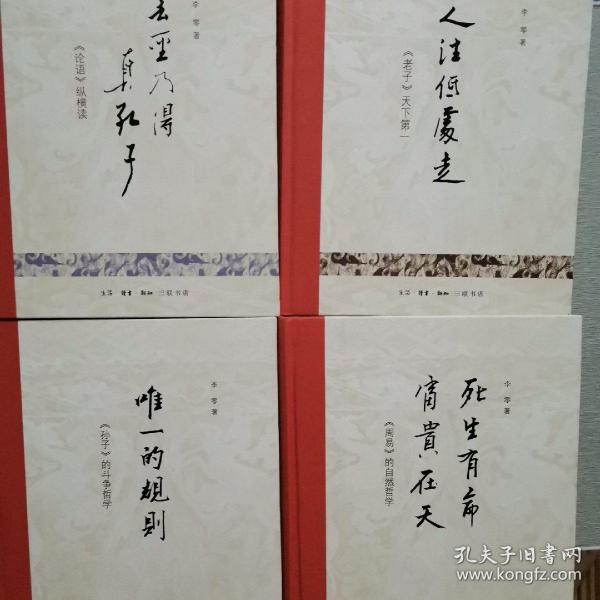 李零 著
去聖乃得
真孔子
《论语》纵横读
生活·讀書·新知 三联书店
李零 著
人往低處走
《老子》天下第一
生活·讀書·新知 三联书店
李零 著
唯一的規則
《孙子》的斗争哲学
李零 著
死生有命
富貴在天
《周易》的自然哲学
孔夫子旧书网
www.kongfz.com